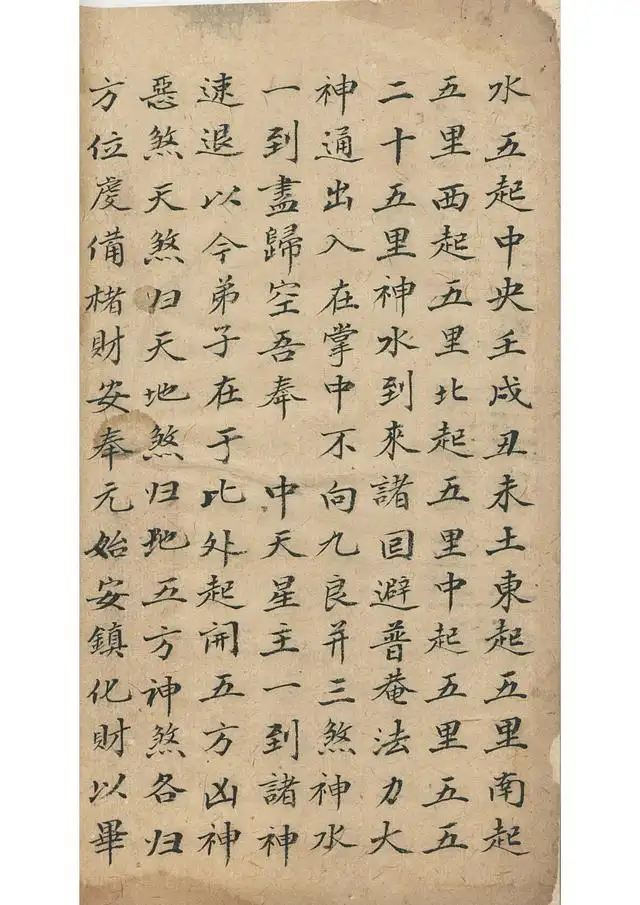 水五起中央壬戌丑未土東起五里南起
五里西起五里北起五里中起五里五五
二十五里神水到來諸回避普菴法力大
神通出入在掌中不向九良并三煞神水
一到盡歸空吾奉 中天星主一到諸神
速退以今弟子在于比外起開五方凶神
惡煞天煞归天地煞归地五方神煞各归
方位虔備楮財安奉元始安鎮化財以畢